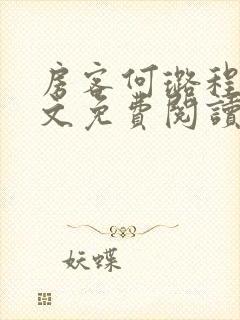 房客何璐程
文免費閱讀
妖蝶